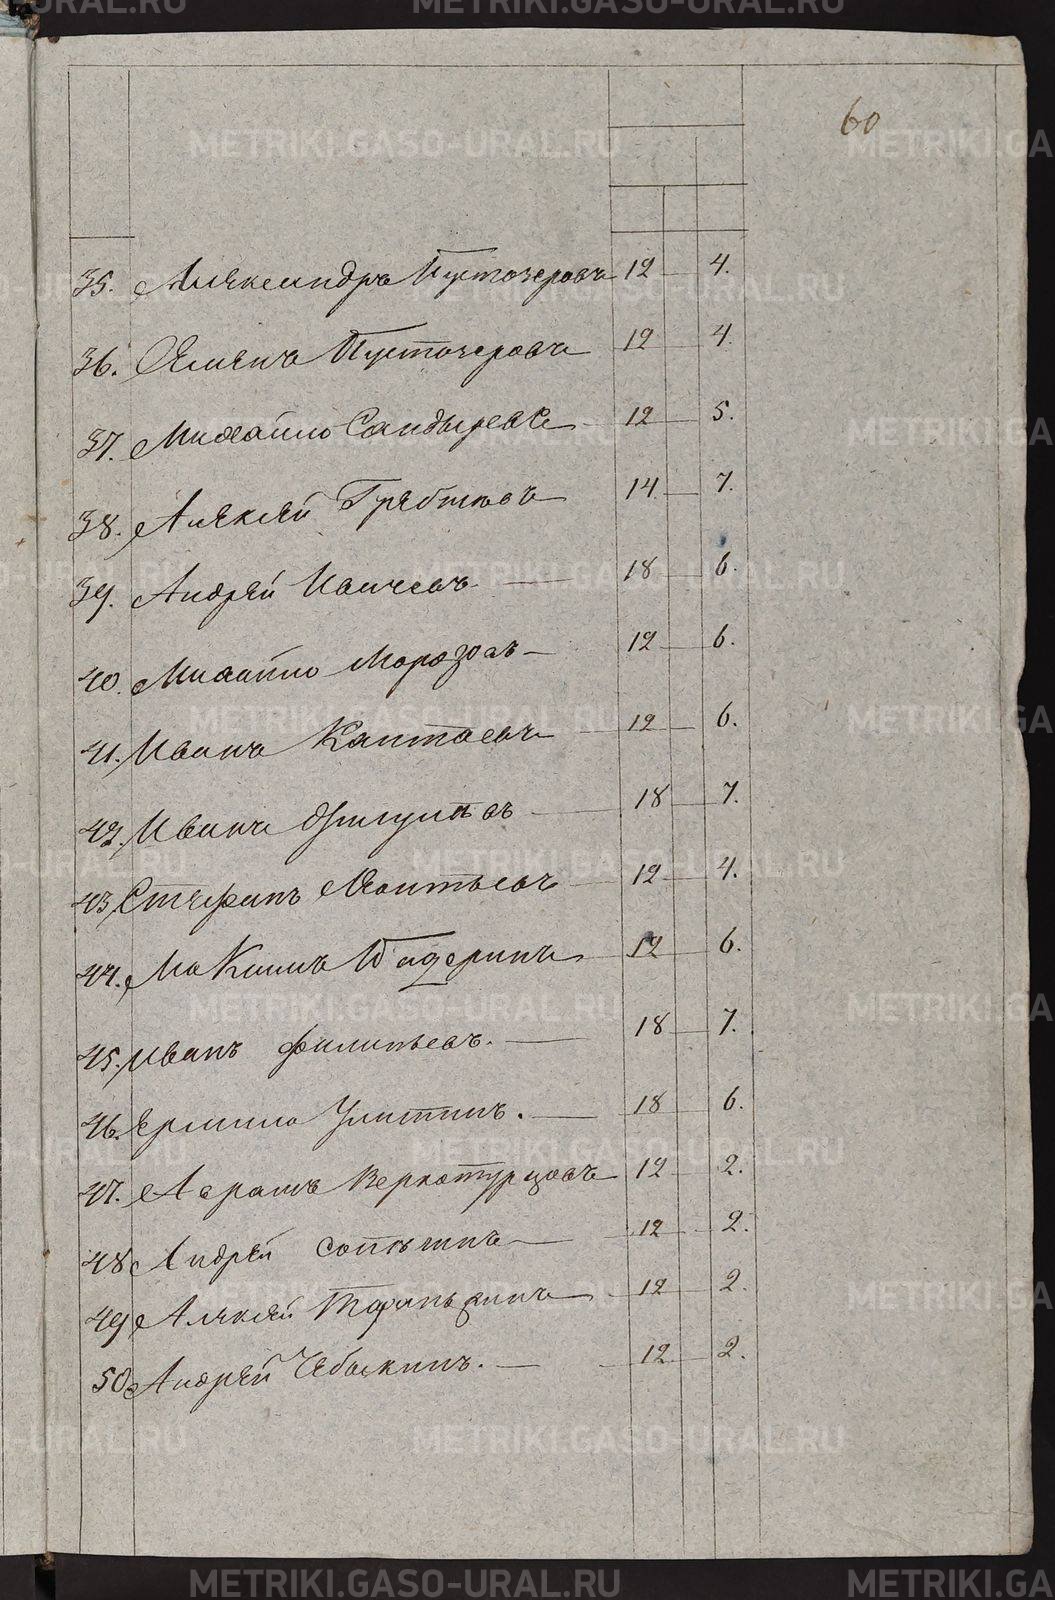 60
35. Александръ Пустозеровъ 12 4.
36. Семенъ Пустозеровъ 12 4.
37. Михайло Сандыревъ 12 5.
38. Алексей Гребневъ 14 7.
39. Андрей 18 6.
40. Михайло Морозовъ 12 6.
41. Иванъ 12 6.
42. Иванъ 18 7.
43. Стефанъ Леонтьевъ 12 4.
44. Максимъ 12 6.
45. Иванъ Филипьевъ. 18 7.
46. Ермило Улитинъ. 18 6.
47. Аврамъ Верхотурцовъ 12 2.
48. Андрей 12 2.
49. Алексей 12 2.
50. Андрей Чебыкинъ. 12 2.
METRIKI.GASO-URAL.RU